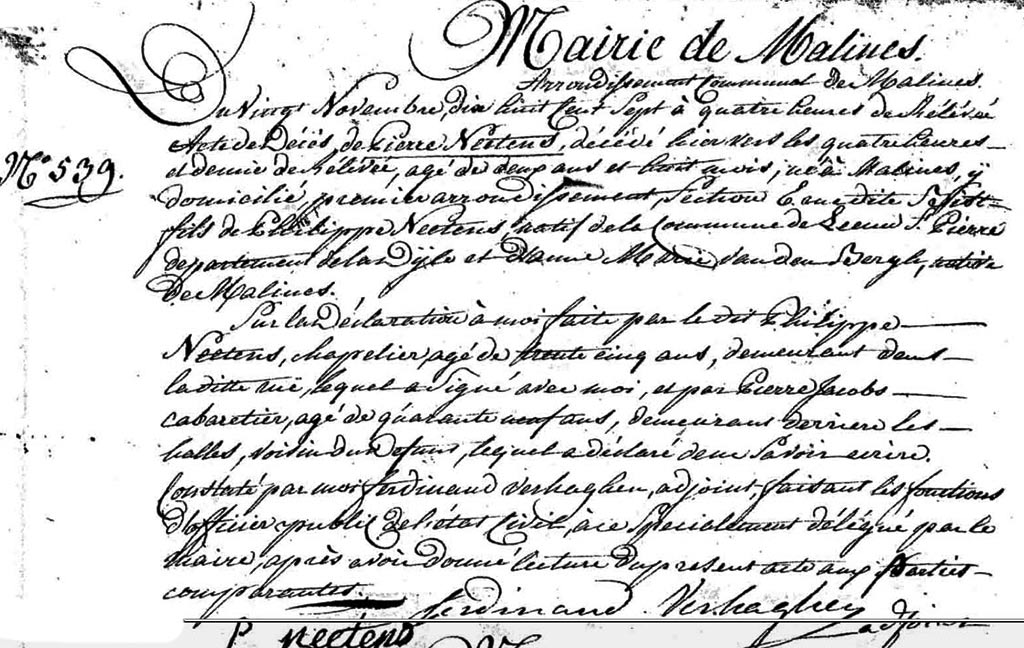 Mairie de Malines.
Arrondissement Communal de Malines.
Du Vingt Novembre, dix huit Cent Sept à quatre heures de Rélévée
Acte de Décès, de Pierre Neetens, décédé hier vers les quatre heures
N.º 539.
et demie de Rélévée, agé de deux ans et huit mois, né à Malines, y
domicilié, premier arrondissement, Section E rue dite
fils de Philippe Neetens, natif de la Commune de Leeuw S.t Pierre
departement de la Dÿle et d'Anne Marie Van den Bergh, native
de Malines.
Sur la Déclaration à moi faite par le dit Philippe
Neetens, chapelier, agé de trente cinq ans, demeurant dans
la ditte rue, lequel a Signé avec moi, et par Pierre Jacobs
cabaretier, agé de quarante neuf ans, demeurant derriere les
halles, voisin du defunt, lequel a déclaré de ne Savoir ecrire.
Constaté par moi Ferdinand Verhaghen, adjoint, faisant les fonctions
d'officier public de l'état Civil, à ce Specialement délégué par le
maire, après avoir donné lecture du present acte aux Parties
comparantes.
Ferdinand Verhaghen
adjoint
P neetens